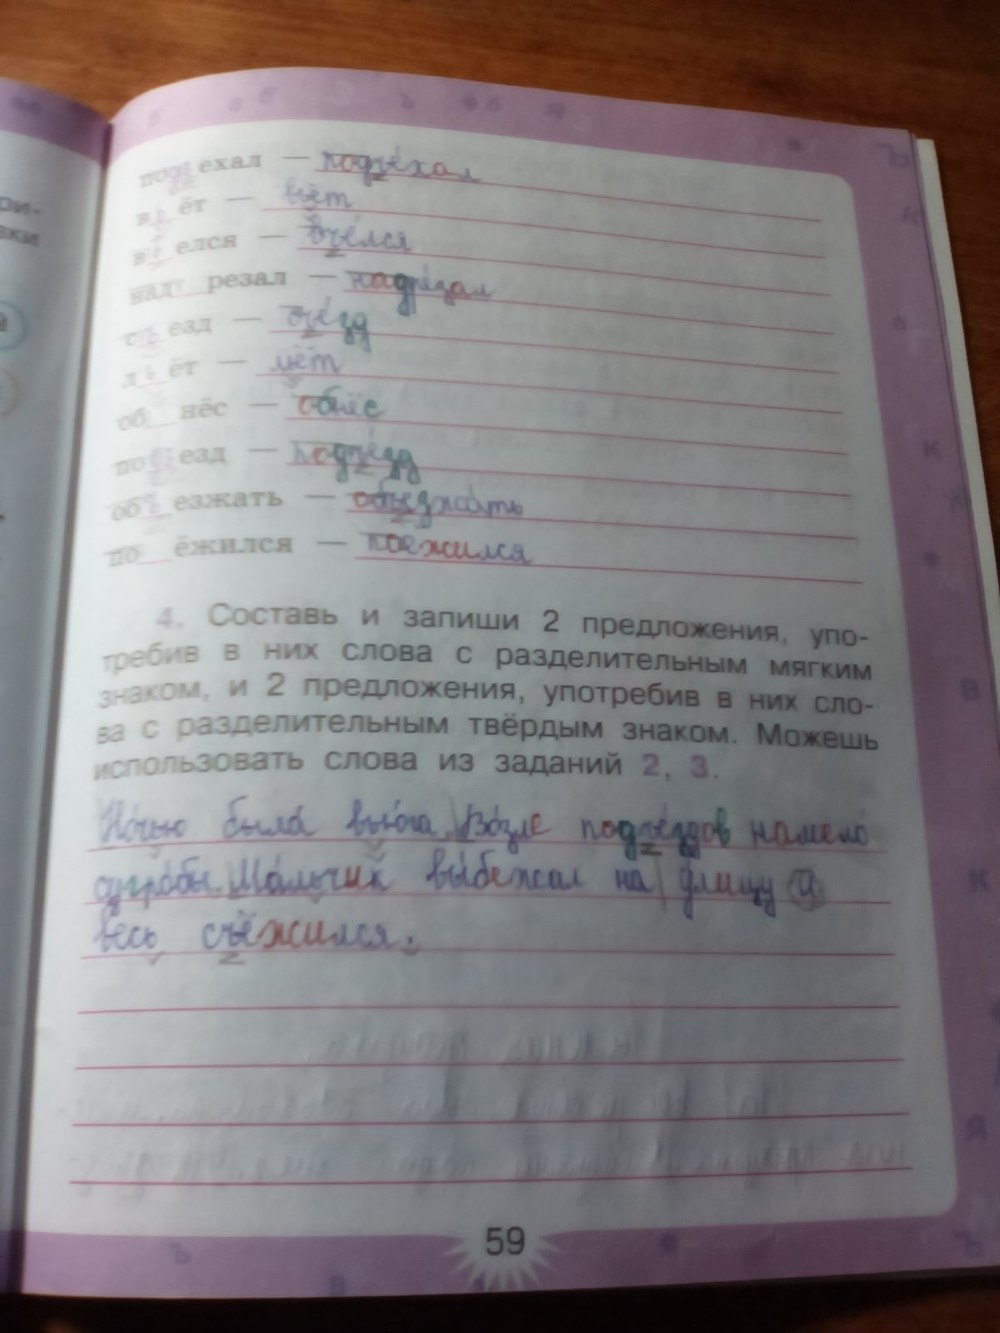 подъехал — подъехал
вьёт — вьёт
въелся — въелся
над резал — надрезал
съезд — съезд
льёт — льёт
об нёс — обнёс
подъезд — подъезд
объезжать — объезжать
по ёжился — поежился
4. Составь и запиши 2 предложения, упо-
требив в них слова с разделительным мягким
знаком, и 2 предложения, употребив в них сло-
ва с разделительным твёрдым знаком. Можешь
использовать слова из заданий 2, 3.
Ночью была вьюга. Возле подъездов намело
сугробы. Мальчик выбежал на улицу и
весь съёжился.
59